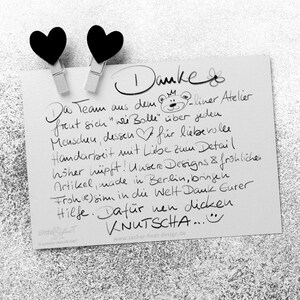 Danke
Das Team aus dem -liner Atelier
freut sich "wie Bolle" über jeden
Menschen, dessen ♡ für liebevolle
Handarbeit mit Liebe zum Detail
höher hüpft! Unsere Designs & fröhliche
Artikel, made in Berlin, bringen
Froh(s)inn in die Welt. Dank Eurer
Hilfe. Dafür nen dicken
KNUTSCHA...